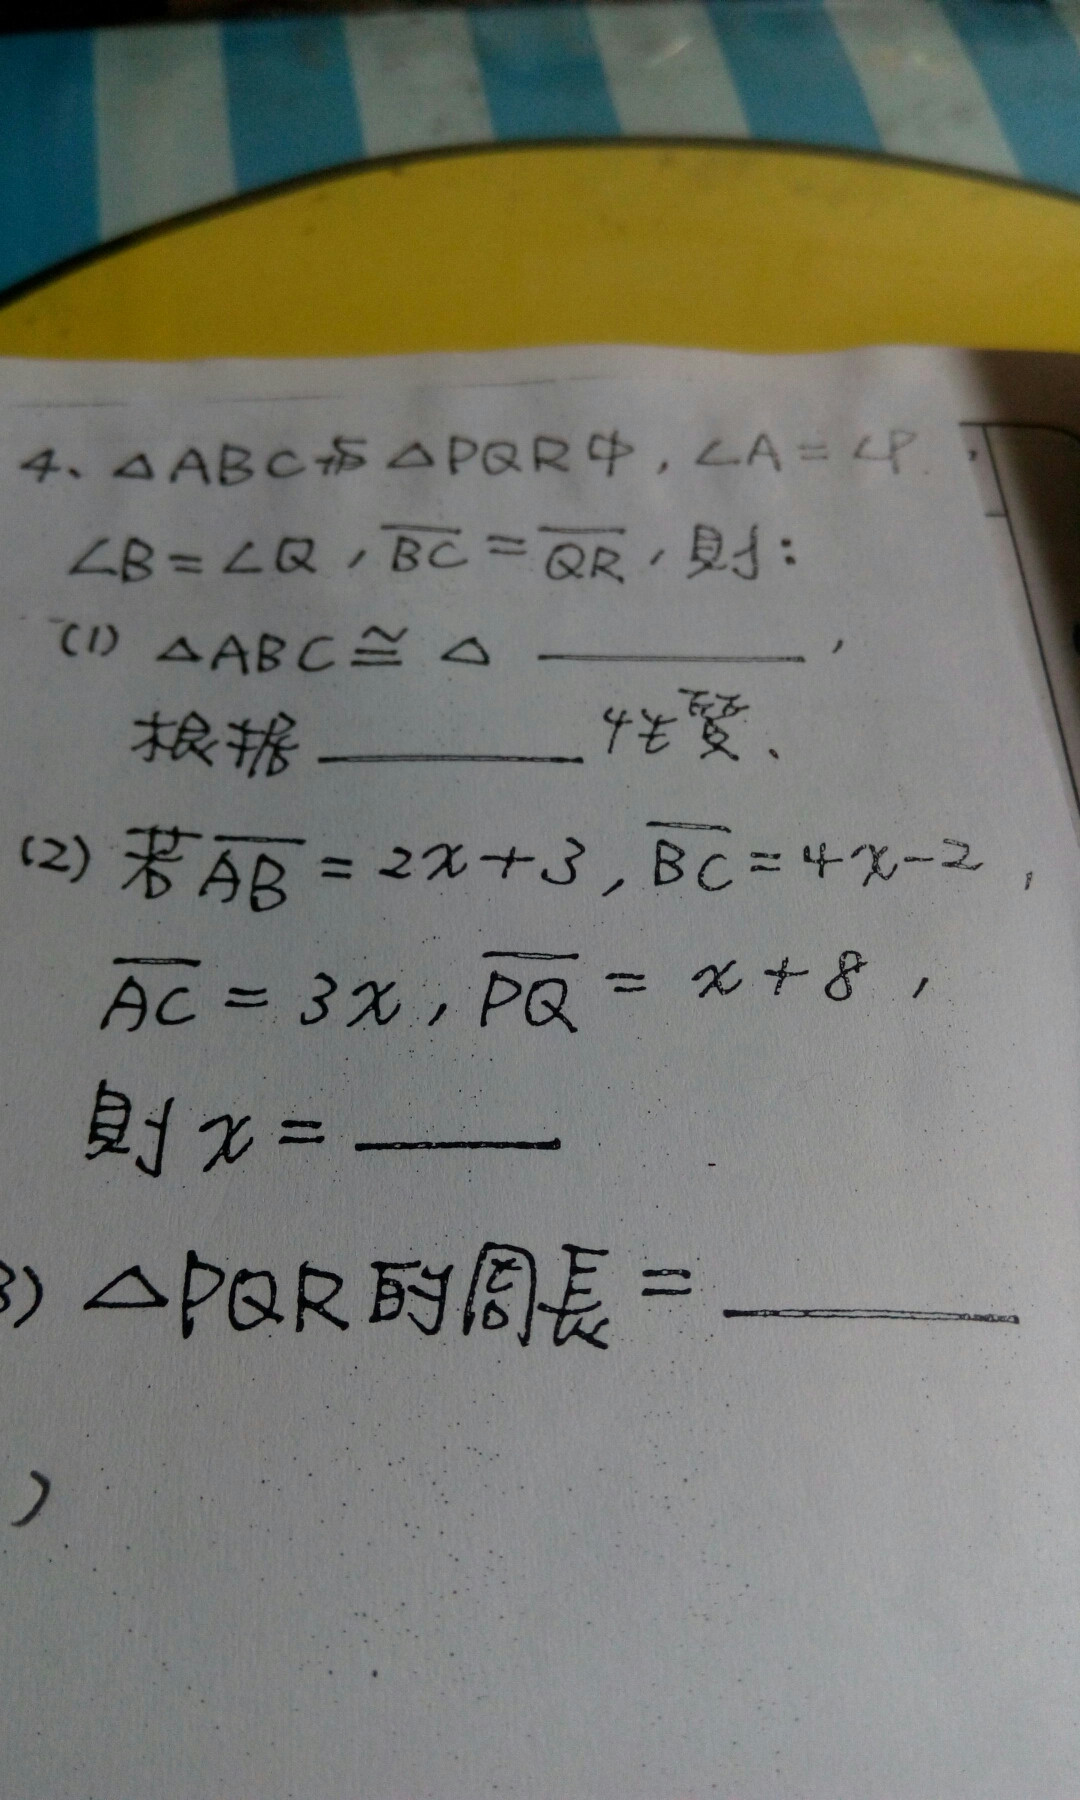 4、△ABC與△PQR中，∠A=∠P，
∠B=∠Q，BC=QR，則：
(1) △ABC≅△________，
根据________性質、
(2) 若AB=2x+3，BC=4x-2，
AC=3x，PQ=x+8，
則x=____
3) △PQR的周長=______
)